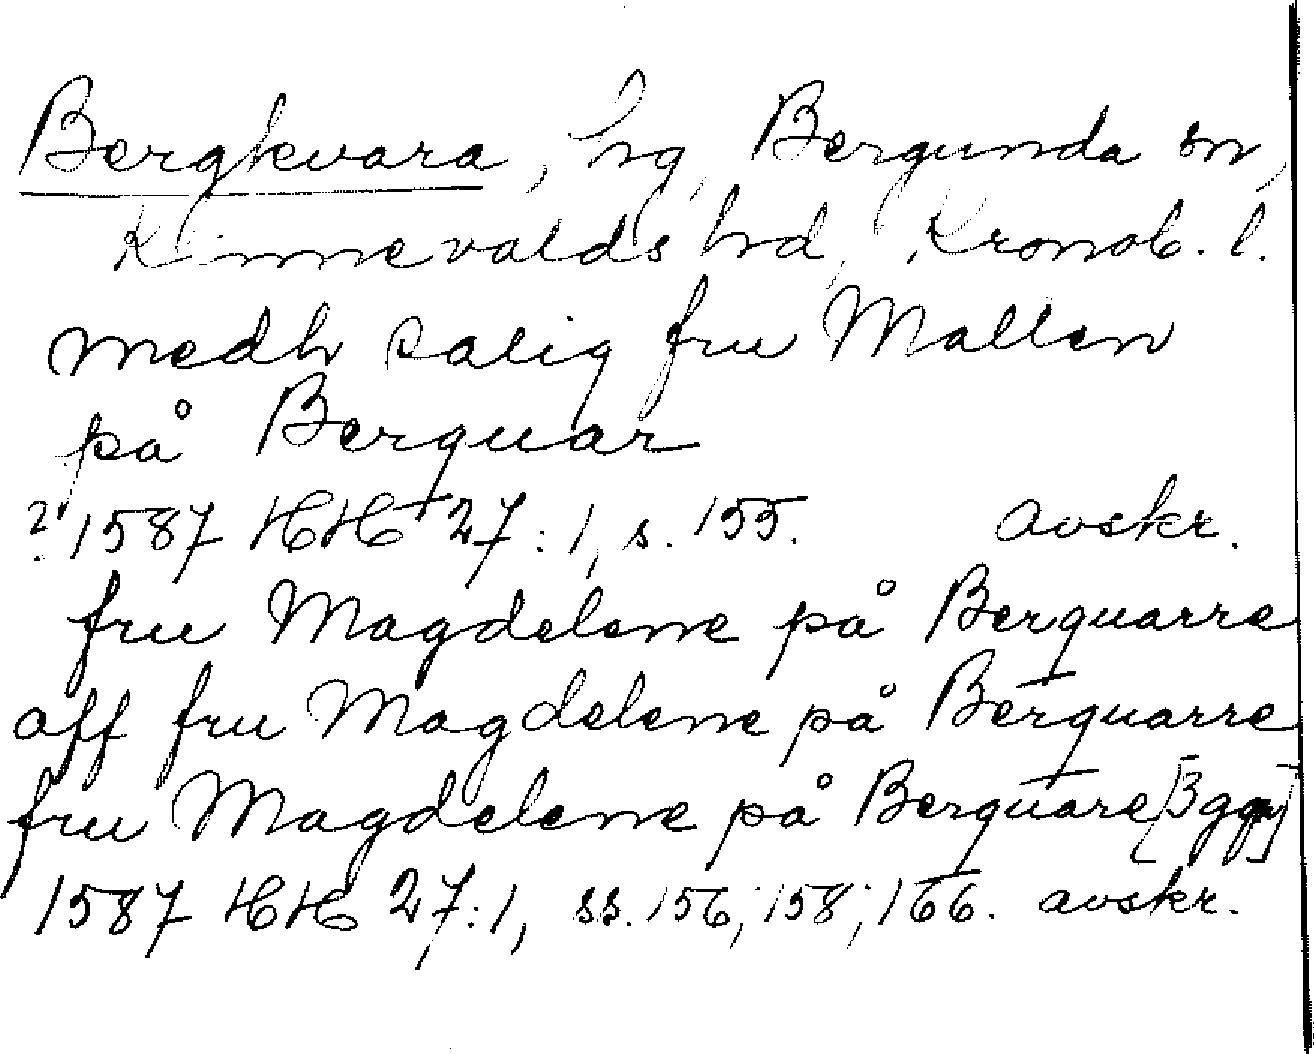 Bergkvara, hg, Bergunda sn,
Kinnevalds hd, Kronob. l.
medh salig fru Mallen
på Berquar
? 1587 HH 27:1, s. 155. avskr.
fru Magdelene på Berquarre
aff fru Magdelene på Berquarre
fru Magdelene på Berquare [3 ggr]
1587 HH 27:1, ss. 156, 158, 166. avskr.